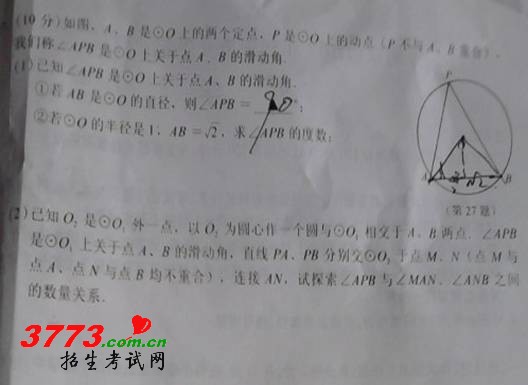 (10 分)如图, A、B 是⊙O 上的两个定点, P 是⊙O 上的动点 (P 不与 A、B 重合),
我们称∠APB 是⊙O 上关于点 A、B 的滑动角.
(1)已知∠APB 是⊙O 上关于点 A、B 的滑动角.
①若 AB 是⊙O 的直径, 则∠APB = 90°;
②若⊙O 的半径是 1, AB = √2, 求∠APB 的度数;
P
A
√2
B
(第 27 题)
(2)已知 O₂ 是⊙O₁ 外一点, 以 O₂ 为圆心作一个圆与⊙O₁ 相交于 A、B 两点, ∠APB
是⊙O₁ 上关于点 A、B 的滑动角, 直线 PA、PB 分别交⊙O₂ 于点 M、N (点 M 与
点 A、点 N 与点 B 均不重合), 连接 AN, 试探索∠APB 与∠MAN、∠ANB 之间
的数量关系.
3773.com.cn
招生考试网